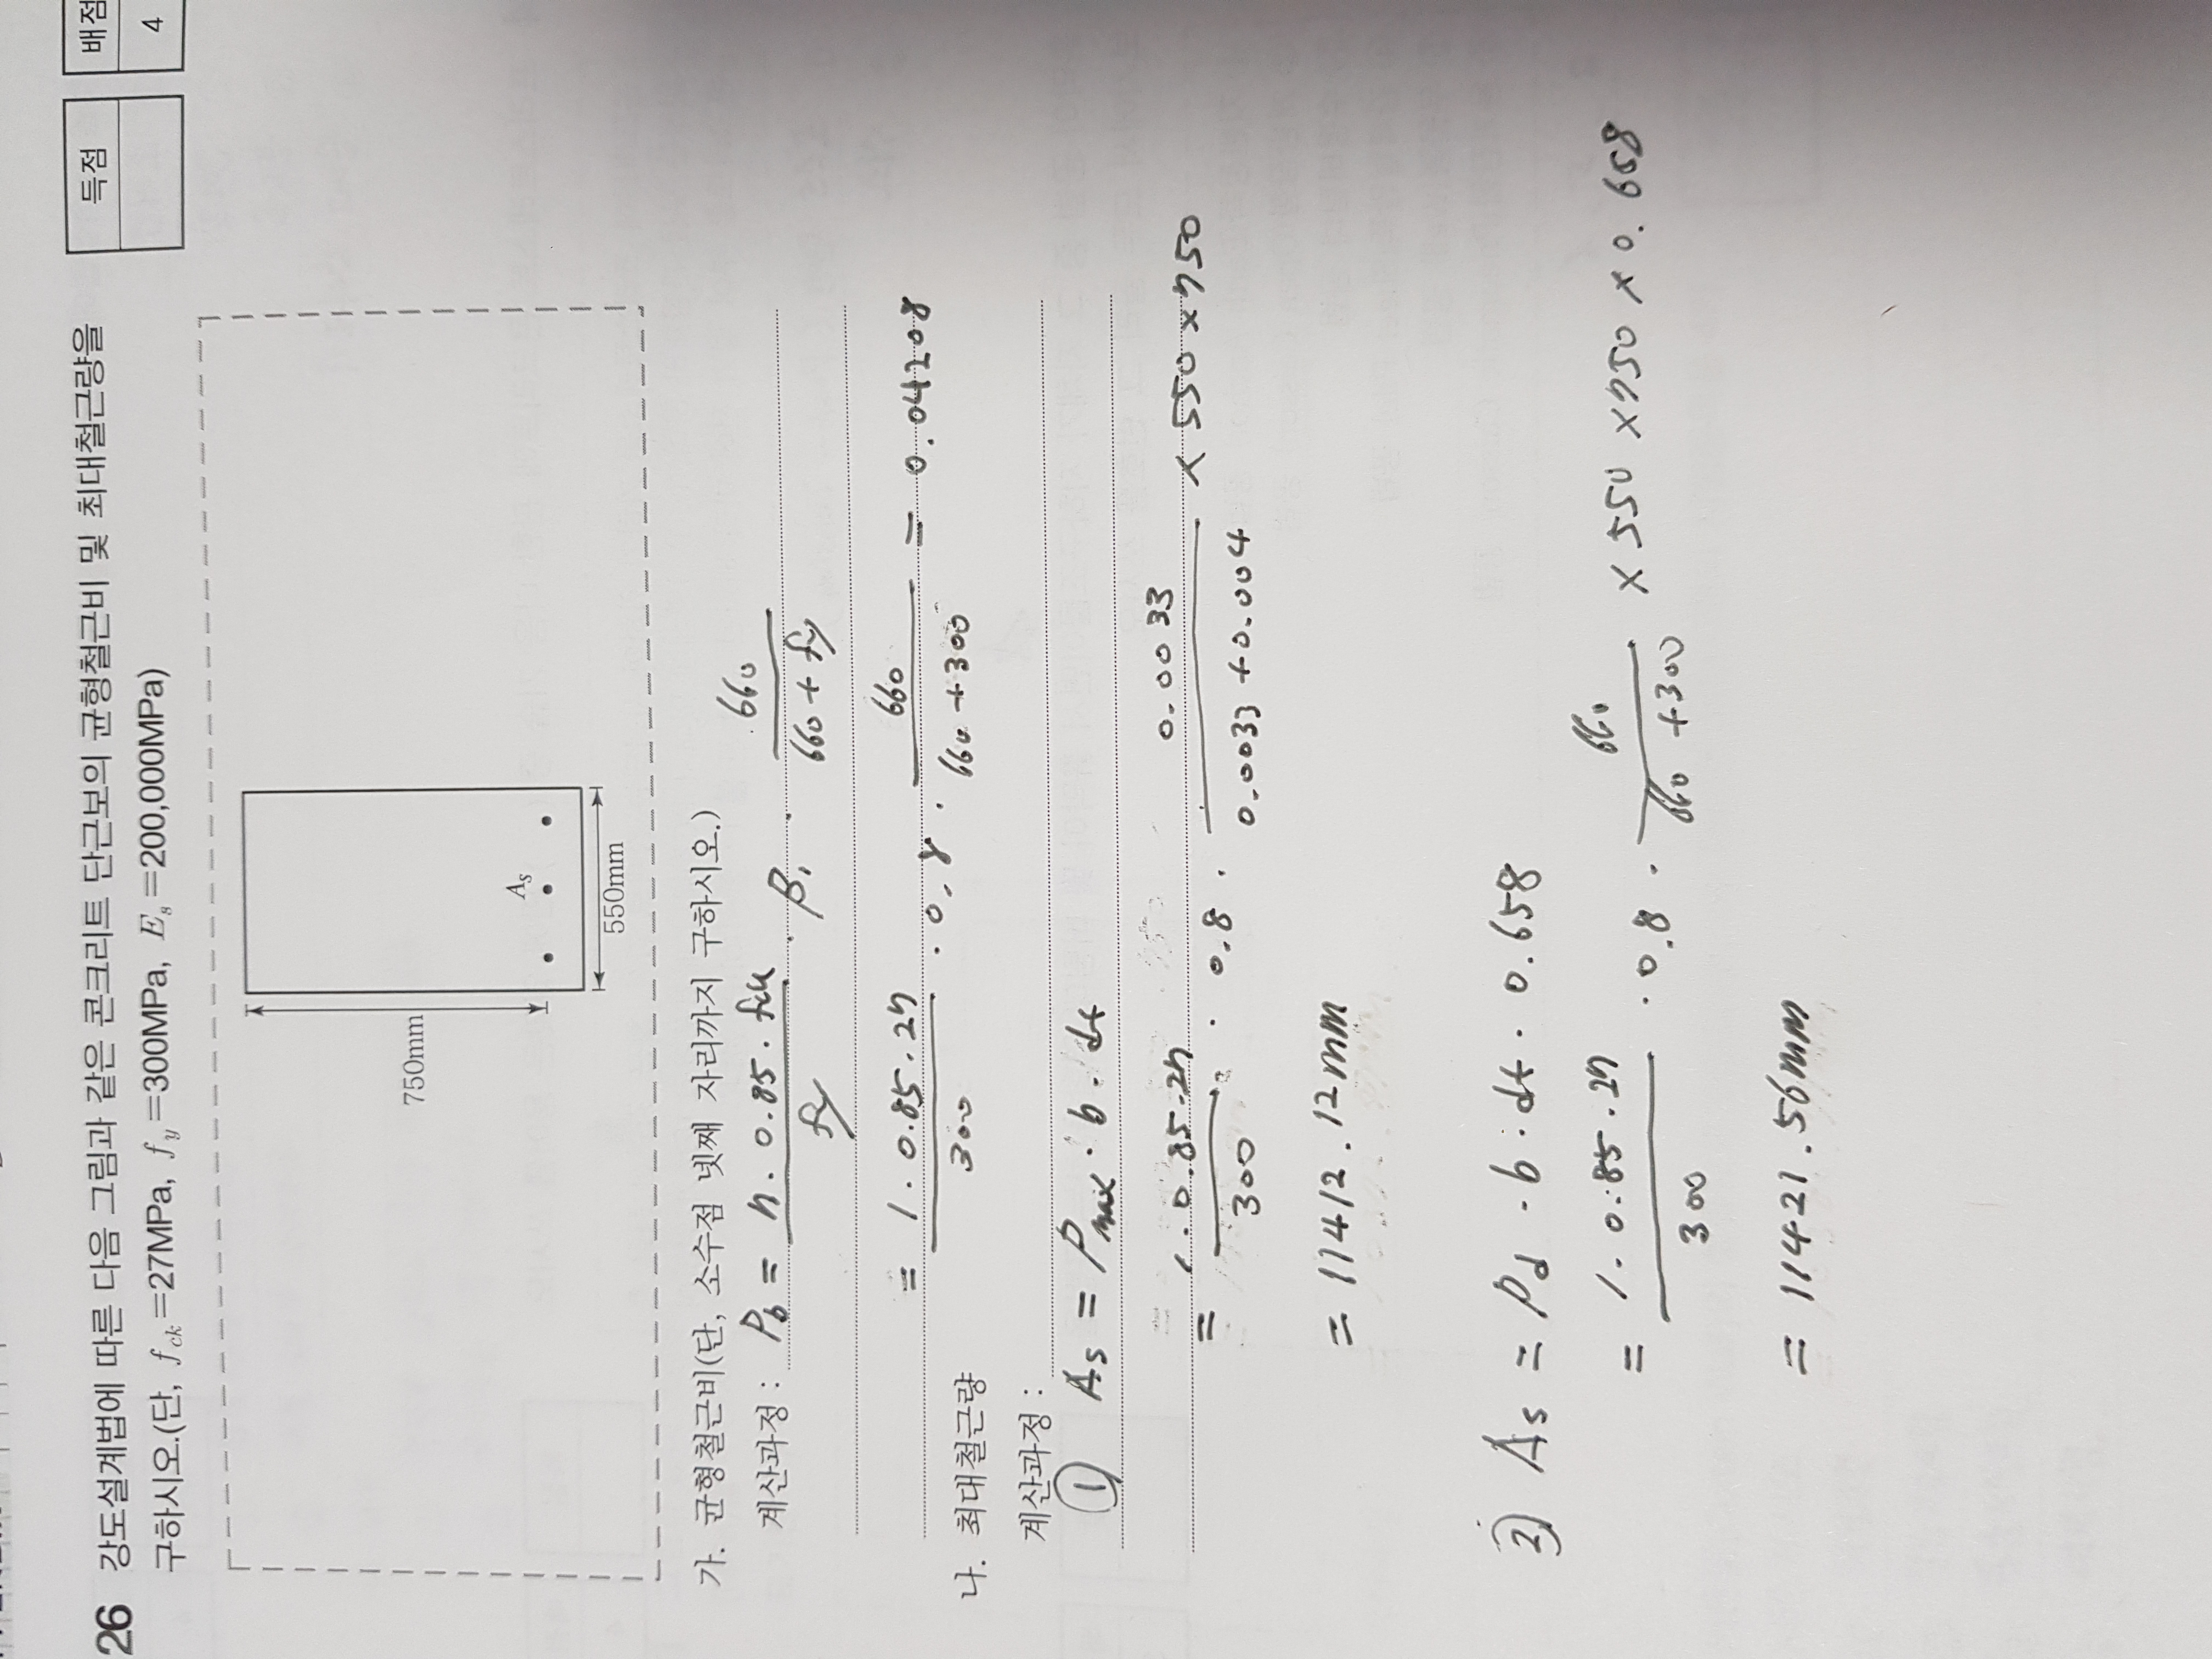 득점
배점
4
26 강도설계법에 따른 다음 그림과 같은 콘크리트 단근보의 균형철근비 및 최대철근량을
구하시오.(단, f_ck=27MPa, f_y=300MPa, E_s=200,000MPa)
750mm
A_s
550mm
가. 균형철근비(단, 소수점 넷째 자리까지 구하시오.)
계산과정 : P_b = η·0.85·fck / fy · β₁ · 660 / 660+fy
= 1·0.85·27 / 300 · 0.8 · 660 / 660+300 = 0.04208
나. 최대철근량
계산과정 :
① As = P_max · b · dt
= 1·0.85·27 / 300 · 0.8 · 0.0033 / 0.0033+0.004 × 550 × 750
= 11412.12mm
② As = P_d · b · dt · 0.658
= 1·0.85·27 / 300 · 0.8 · 660 / 660+300 × 550 × 750 × 0.658
= 11421.56mm